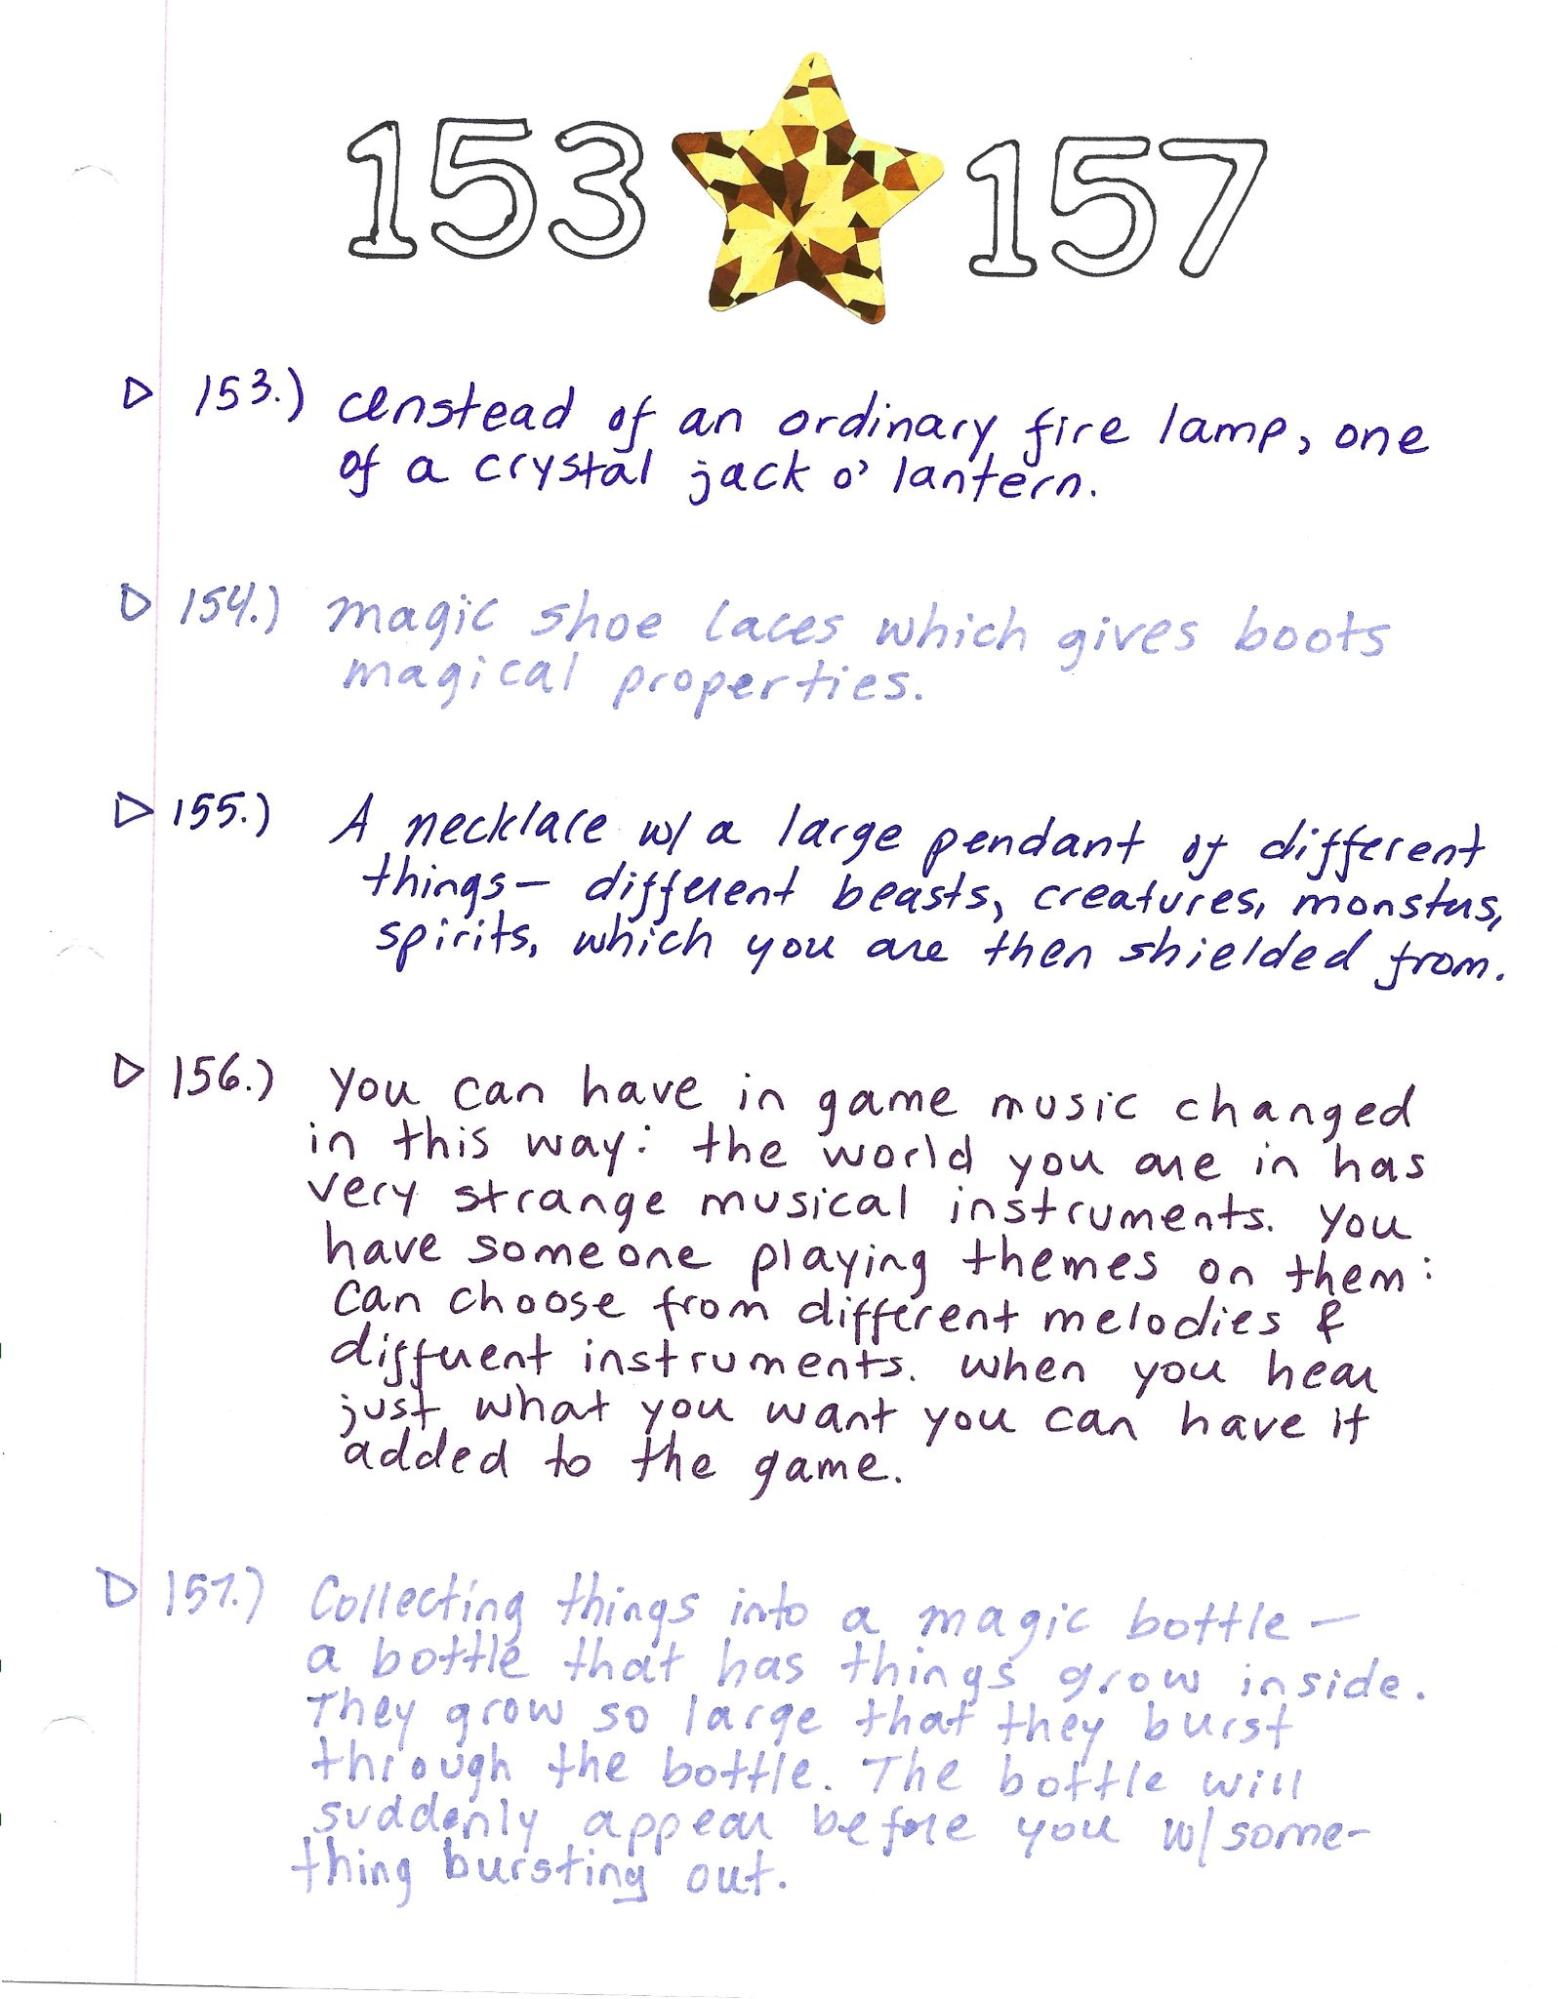 153 157
153.) Instead of an ordinary fire lamp, one
of a crystal jack o' lantern.
154.) magic shoe laces which gives boots
magical properties.
155.) A necklace w/ a large pendant of different
things— different beasts, creatures, monsters,
spirits, which you are then shielded from.
156.) You can have in game music changed
in this way: the world you are in has
very strange musical instruments. You
have someone playing themes on them:
can choose from different melodies &
different instruments. When you hear
just what you want you can have it
added to the game.
157.) Collecting things into a magic bottle—
a bottle that has things grow inside.
They grow so large that they burst
through the bottle. The bottle will
suddenly appear before you w/some-
thing bursting out.